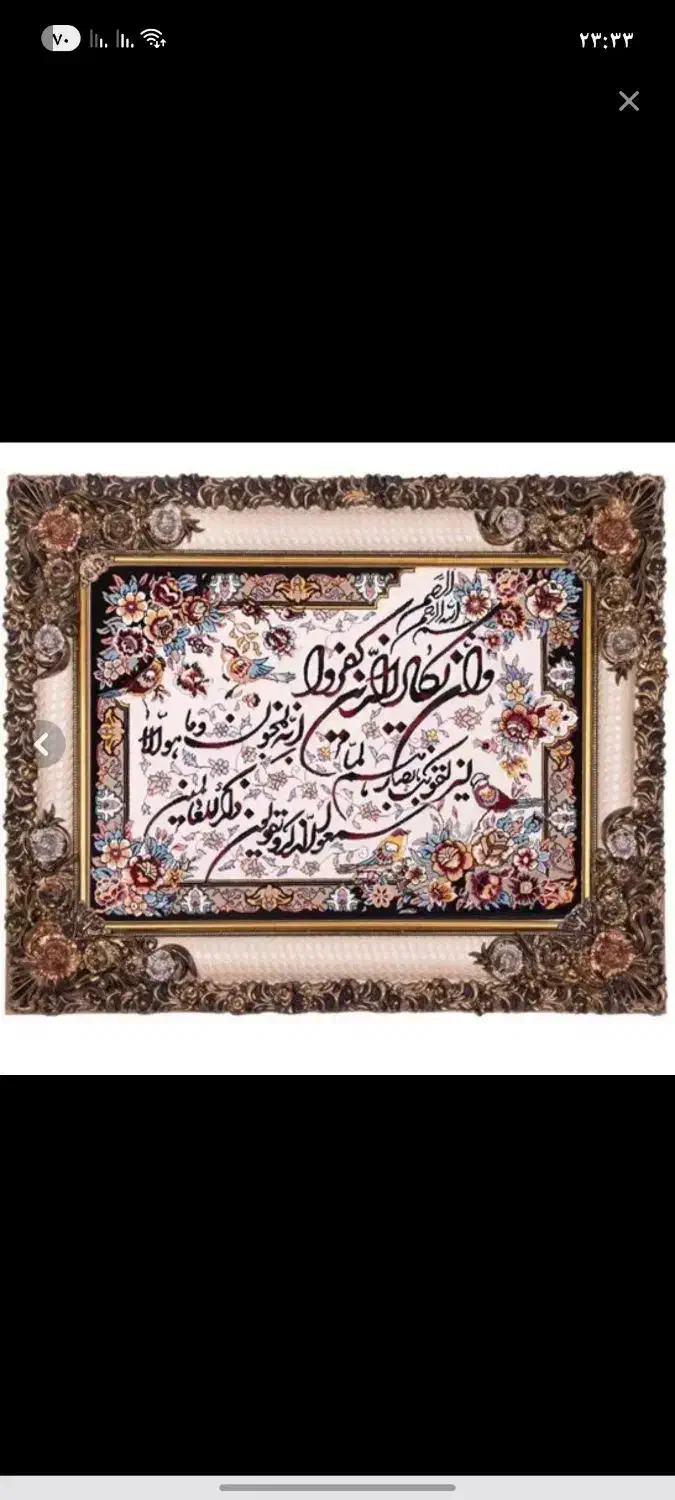 ۷۰
۲۳:۳۳
بسم الله الرحمن الرحیم
وان یکاد الذین کفروا
لیزلقونک بابصارهم لما
سمعوا الذکر ویقولون
انه لمجنون وما هو الا
ذکر للعالمین